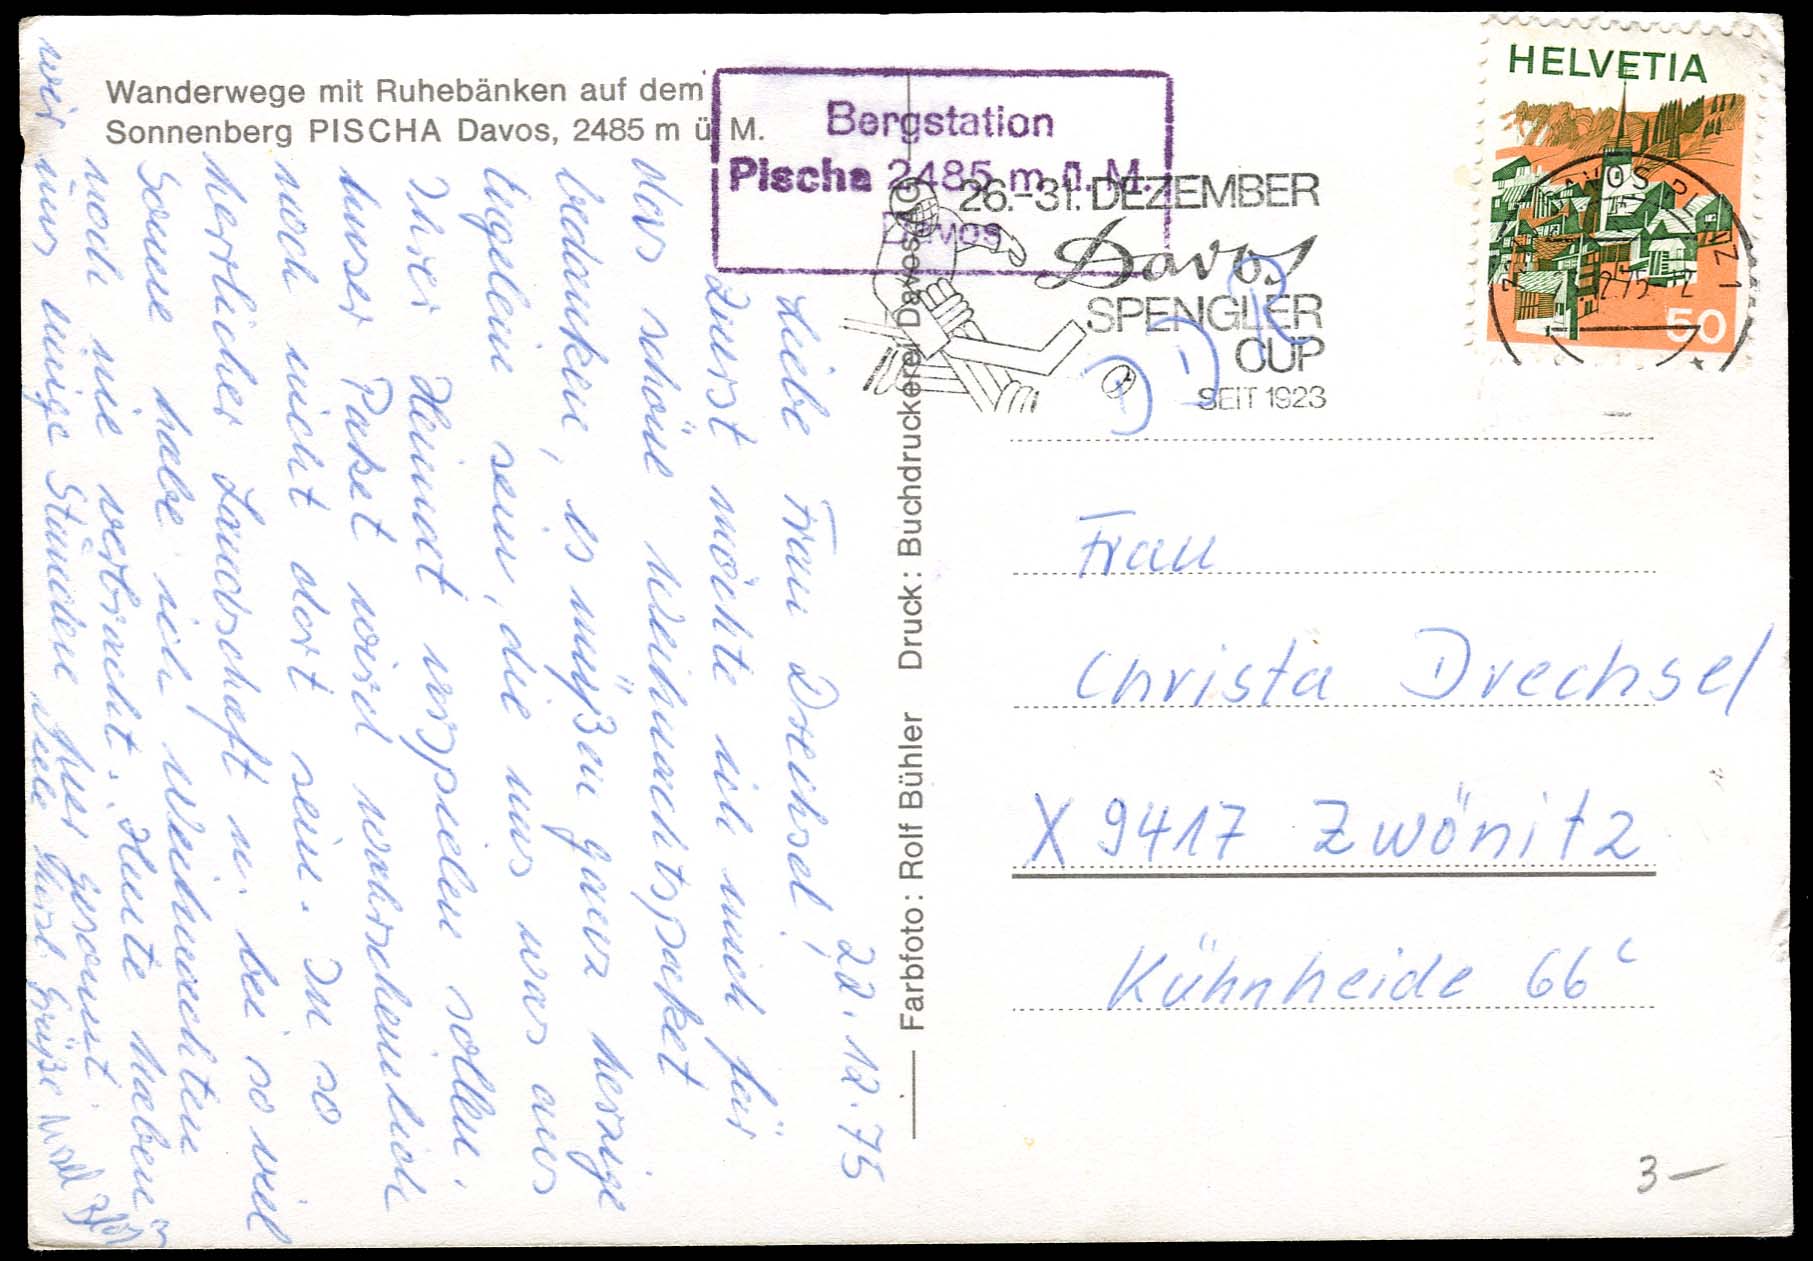 Wanderwege mit Ruhebänken auf dem
Sonnenberg PISCHA Davos, 2485 m ü. M.
Bergstation
Pischa 2485 m ü. M.
Davos
26.-31. DEZEMBER
Davos
SPENGLER
CUP
SEIT 1923
HELVETIA
50
DAVOS PLATZ 1
Farbfoto: Rolf Bühler Druck: Buchdruckerei Davos AG
22.12.75
Liebe Frau Drechsel!
Zuerst möchte ich mich für
das schöne Weihnachtspaket
bedanken, es müßen ganz herzige
sein, die uns was aus
Ihrer Heimat vorspielen sollen.
Unser Paket wird wahrscheinlich
noch nicht dort sein. In so
herrlicher Landschaft u. bei so viel
Sonne habe ich Weihnachten
noch nie verbracht. Heute haben
wir uns einige Stunden
gesonnt
Viele Grüße
DDR
Frau
Christa Drechsel
X 9417 Zwönitz
Kühnheide 66c
3-